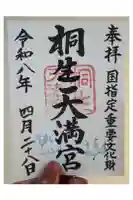 奉拝
国指定重要文化財
桐生天満宮
令和八年
四月二十八日